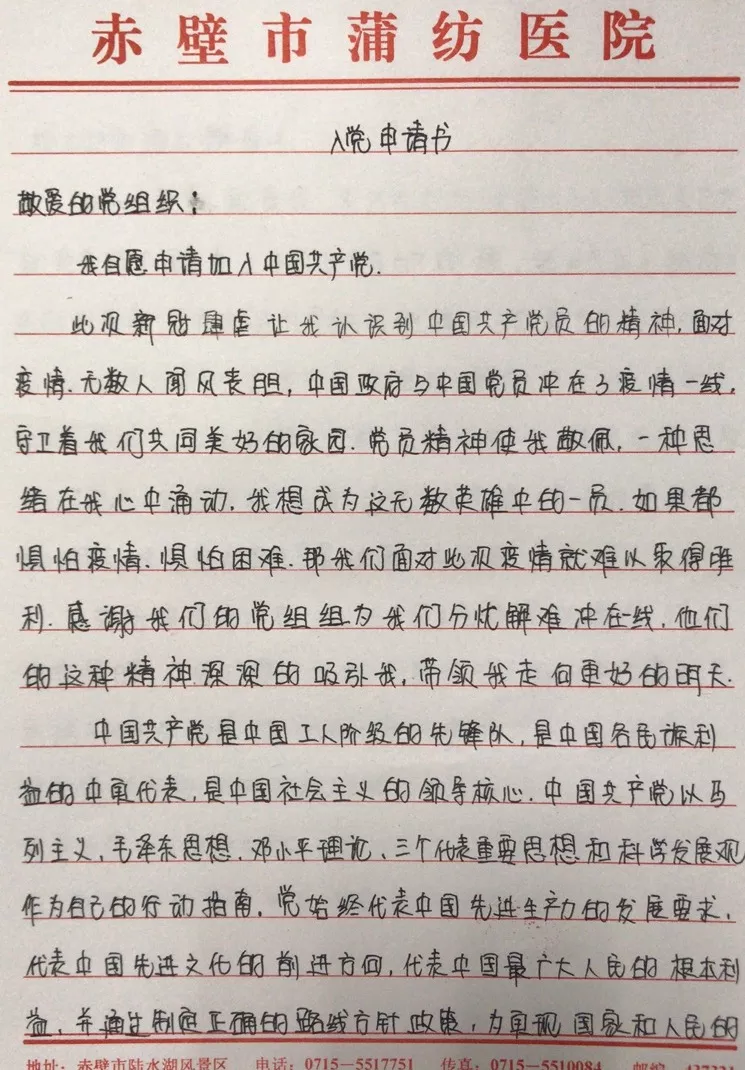 赤壁市蒲纺医院
入党申请书
敬爱的党组织：
我自愿申请加入中国共产党.
此次新冠肆虐让我认识到中国共产党员的精神,面对
疫情.无数人闻风丧胆,中国政府与中国党员冲在了疫情一线,
守卫着我们共同美好的家园.党员精神使我敬佩,一种思
绪在我心中涌动,我想成为这无数英雄中的一员.如果都
惧怕疫情.惧怕困难.那我们面对此次疫情就难以取得胜
利.感谢我们的党组组为我们分忧解难冲在线,他们
的这种精神深深的吸引我,带领我走向更好的明天.
中国共产党是中国工人阶级的先锋队,是中国各民族利
益的忠实代表,是中国社会主义的领导核心.中国共产党以马
列主义、毛泽东思想、邓小平理论、三个代表重要思想和科学发展观
作为自己的行动指南,党始终代表中国先进生产力的发展要求,
代表中国先进文化的前进方向,代表中国最广大人民的根本利
益,并通过制定正确的路线方针政策,为实现国家和人民的
地址：赤壁市陆水湖风景区 电话：0715—5517751 传真：0715—5510084 邮编 437321